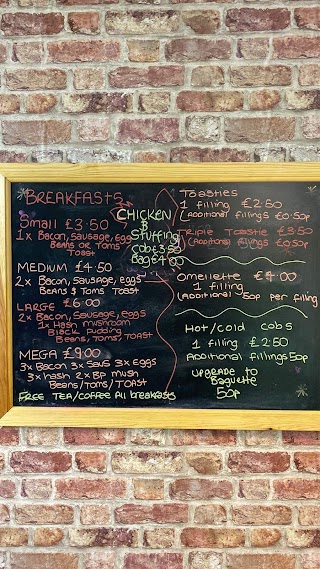 BREAKFASTS
Small £3.50
1x Bacon, Sausage, egg
BEANS OR TOMS
TOAST
MEDIUM £4.50
2x Bacon, Sausage, eggs
BEANS & TOMS TOAST
LARGE £6.00
2x Bacon, Sausage, eggs
1x Hash mushroom
Black Pudding
Beans, Toms, TOAST
MEGA £9.00
3x Bacon 3x Saus 3x Eggs
3x hash 2x BP mush
Beans/Toms/TOAST
FREE TEA/COFFEE All breakfasts
CHICKEN
&
Stuffing
Cob £3.50
Bag £4.00
Toasties
1 filling £2.50
(Additional fillings £0.50p)
Triple Toastie £3.50
(Additional fillings £0.50p)
Omellette £4.00
1 filling
(additional 50p per filling
Hot/cold cobs
1 filling £2.50
Additional fillings 50p
UPGRADE TO
Baguette
50p